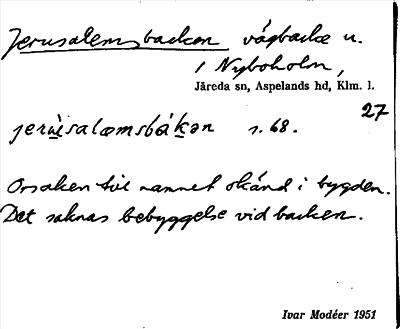 Jerusalemsbacken vägbacke u.
1 Nyboholm,
Järeda sn, Aspelands hd, Klm. l.
27
jerùsalæmsbákən s. 68.
Orsaken till namnet okänd i bygden.
Det saknas bebyggelse vid backen.
Ivar Modéer 1951